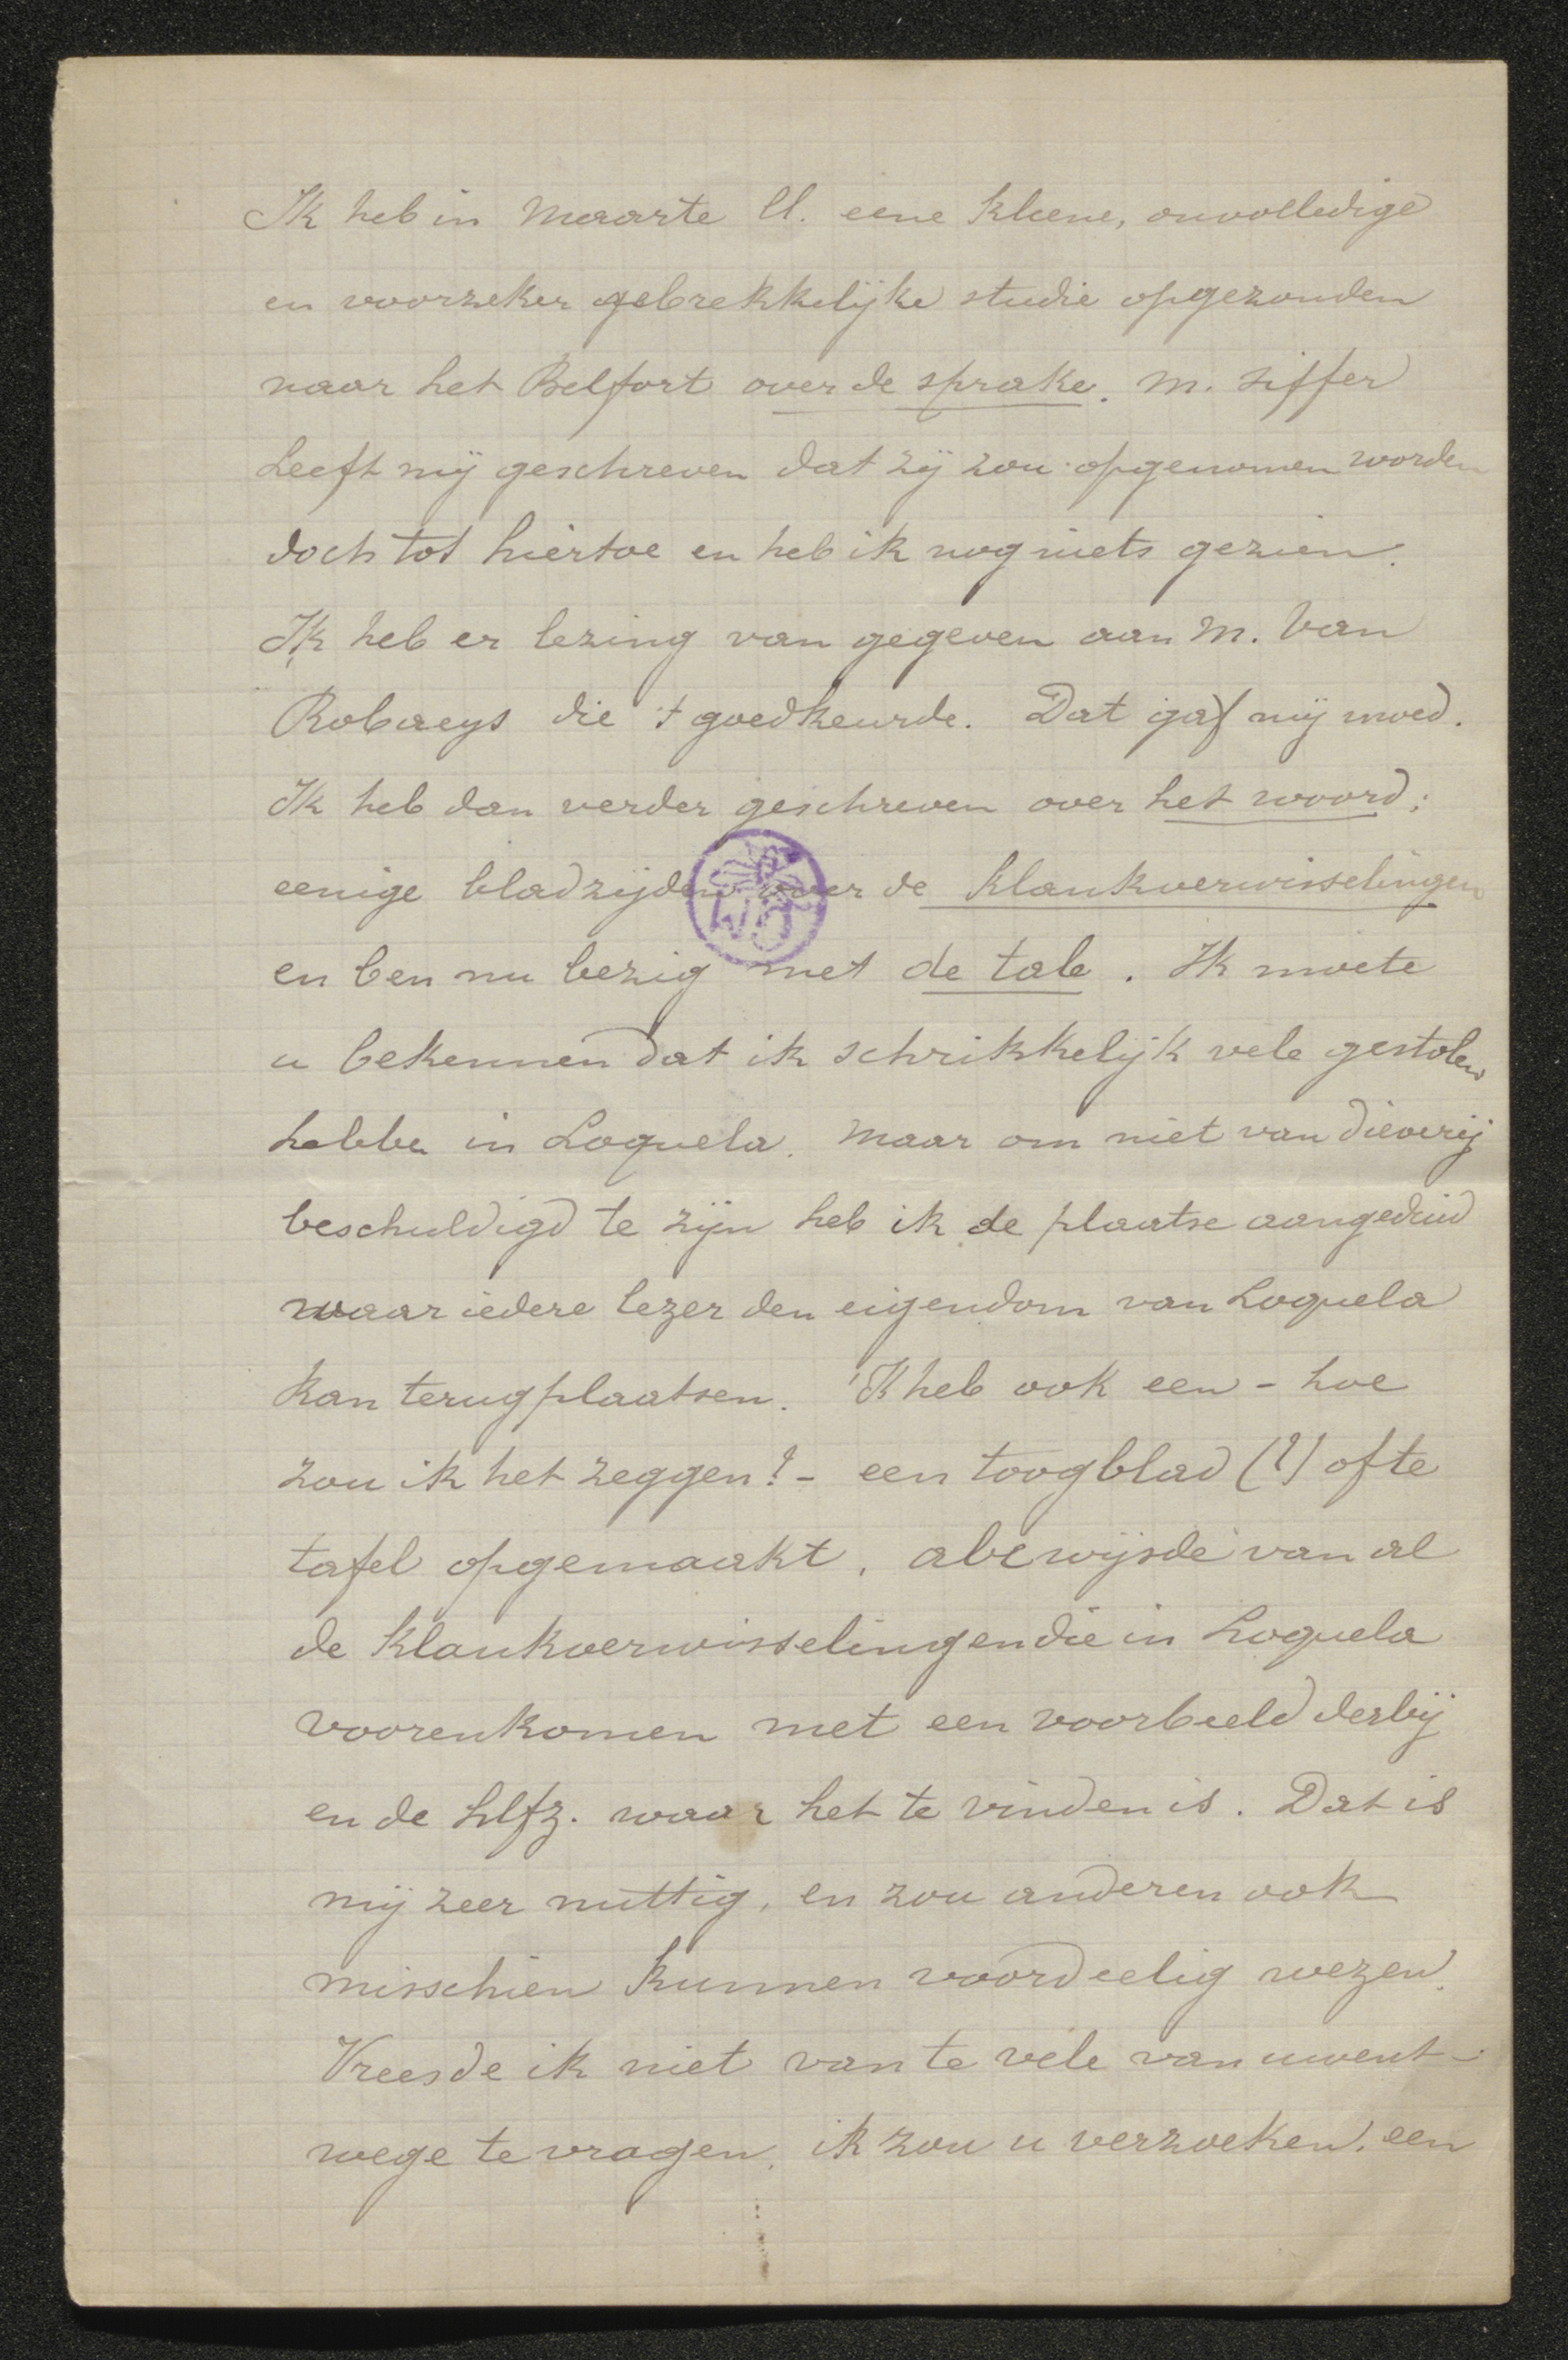 Ik heb in Maarte ll. eene kleene, onvolledige
en voorzeker gebrekkelijke studie opgezonden
naar het Belfort over de sprake. M. Siffer
heeft mij geschreven dat zij zou opgenomen worden
doch tot hiertoe en heb ik nog niets gezien.
Ik heb er lezing van gegeven aan M. Van
Robaeys die 't goedkeurde. Dat gaf mij moed.
Ik heb dan verder geschreven over het woord;
eenige bladzijden over de klankverwisselingen
en ben nu bezig met de tale. Ik moete
u bekennen dat ik schrikkelijk vele gestolen
hebbe in Loquela. Maar om niet van dieverij
beschuldigd te zijn heb ik de plaatse aangeduid
waar iedere lezer den eigendom van Loquela
kan terugplaatsen. 'K heb ook een - hoe
zou ik het zeggen? - een toogblad (?) ofte
tafel opgemaakt, abcwijsde van al
de klankverwisselingen die in Loquela
voorenkomen met een voorbeeld derbij
en de hlfz. waar het te vinden is. Dat is
mij zeer nuttig, en zou anderen ook
misschien kunnen voordeelig wezen.
Vreesde ik niet van te vele van uwent-
wege te vragen, ik zou u verzoeken, een